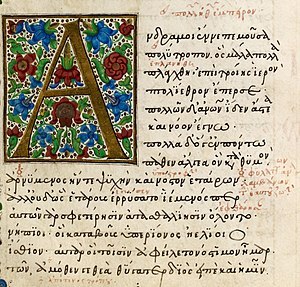 Ἄνδρα μοι ἔννεπε μοῦσα
πολύτροπον. ὃς μάλα πολλὰ
πλάγχθη. ἐπεὶ τροίης ἱερὸν
πτολίεθρον ἔπερσε
πολλῶν δ' ἀνθρώπων ἴδεν ἄστεα
καὶ νόον ἔγνω
πολλὰ δ' ὅγ' ἐν πόντω
πάθεν ἄλγεα ὃν κατὰ θυμὸν
ἀρνύμενος ἥν τε ψυχὴν καὶ νόστον ἑταίρων
ἀλλ' οὐδ' ὣς ἑτάρους ἐρρύσατο ἱέμενός περ
αὐτῶν γὰρ σφετέρησιν ἀτασθαλίησιν ὄλοντο
νήπιοι οἳ κατὰ βοῦς ὑπερίονος ἠελίοιο
ἤσθιον. αὐτὰρ ὁ τοῖσιν ἀφείλετο νόστιμον ἦμαρ
τῶν ἀμόθεν γε θεὰ θύγατερ διὸς εἰπὲ καὶ ἡμῖν.